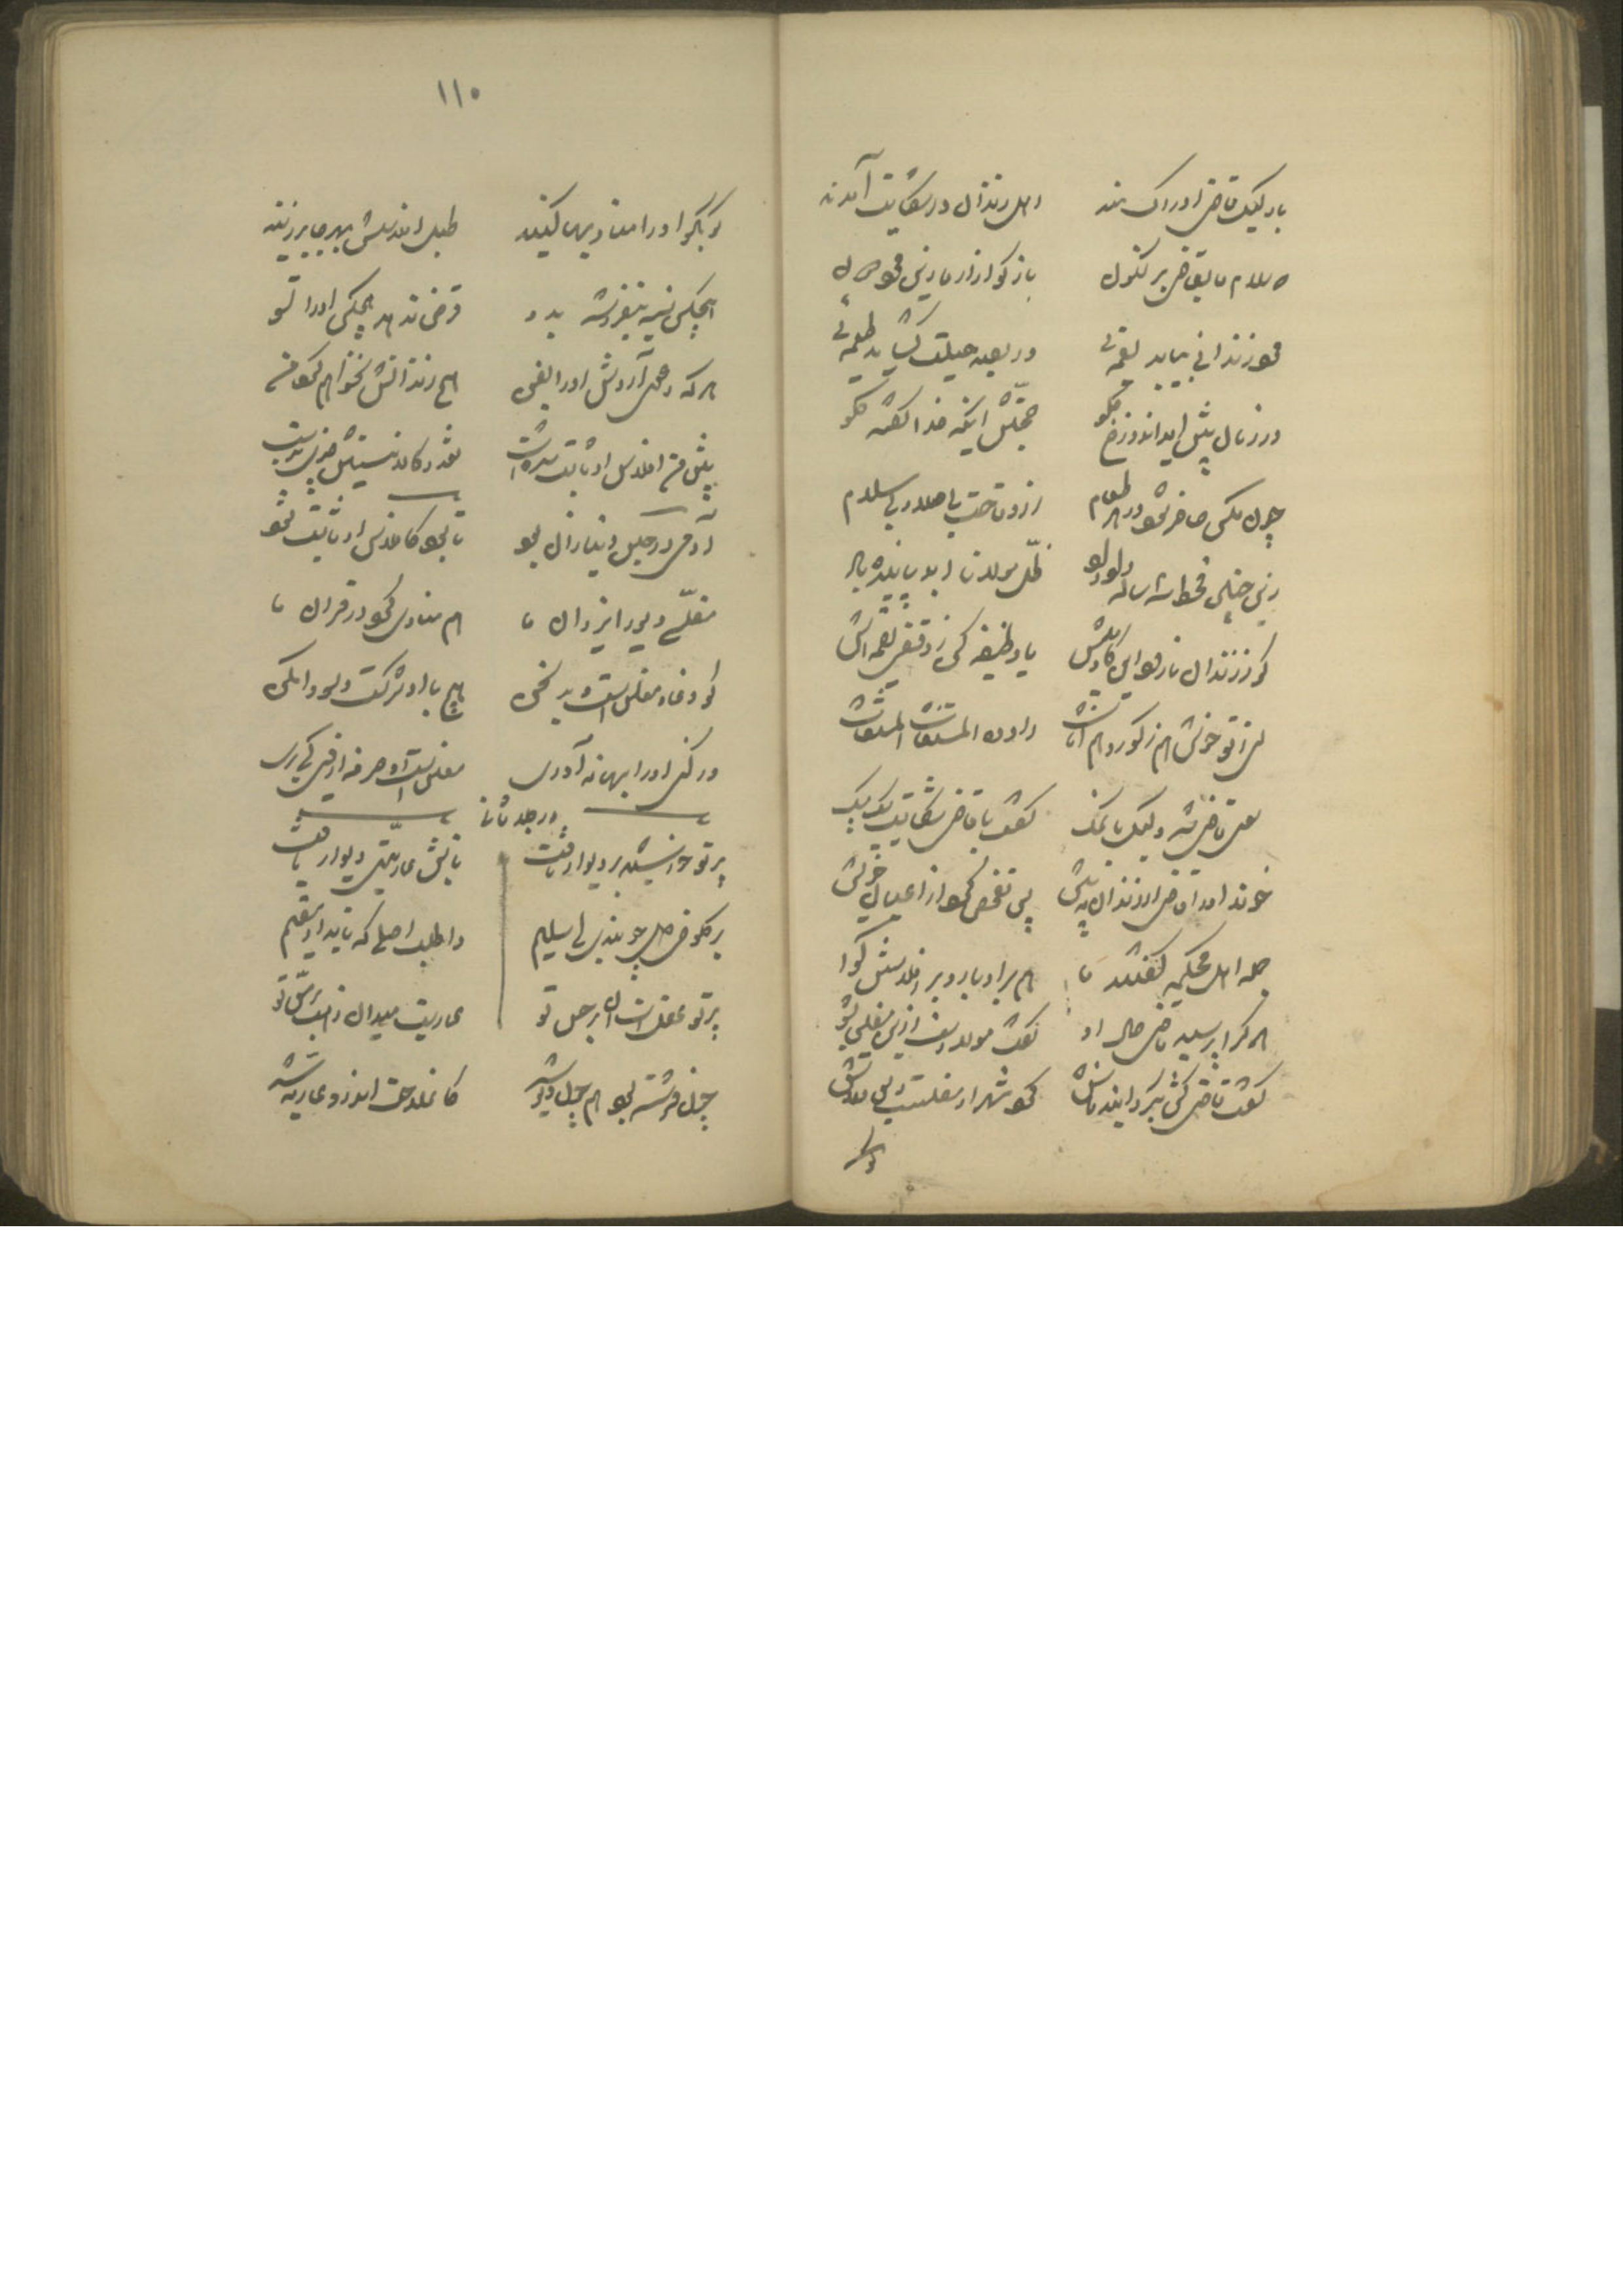 با وکیل قاضی ادراک مند اهل زندان در شکایت آمدند
که سلام ما بقاضی بر کنون بازگو آزار ما زین مرد دون
مرد زندانی نیابد لقمه‌ئی ور بصد حیلت گشاید طعمه‌ئی
در زمان پیش آید آن دوزخ گلو حجتش اینکه خدا گفته کلو
چون مگس حاضر شود در هر طعام از وقاحت بی صلا و بی سلام
زین چنین قحط سه ساله داد داد ظلّ مولانا ابد پاینده باد
گو ز زندان تا رود این گاومیش یا وظیفه کن ز وقفی لقمه‌ایش
ای ز تو خوش هم ذکور و هم اناث داد کن المستغاث المستغاث
سوی قاضی شد وکیل با نمک گفت با قاضی شکایت یک بیک
خواند او را قاضی از زندان به پیش پس تفحص کرد از اعیان خویش
جمله اهل محکمه گفتند ما هم بر ادبار و بر افلاسش گوا
هر کرا پرسید قاضی حال او گفت مولا دست ازین مفلس بشو
گفت قاضی کش بگردانید فاش گرد شهر او مفلست و بس قلاش
۱۱۰
کو بکو او را منادیها کنید طبل افلاسش بهر جا بر زنید
هیچکس نسیه بنفروشد بدو قرض ندهد هیچکس او را تسو
هر که دعوی آردش او را بفن هیچ زندانش نخواهم کرد من
پیش من افلاس او ثابت شدست نقد و کالا نیستش چیزی بدست
آدمی در حبس دنیا زان بود تا بود کافلاس او ثابت شود
مفلسی دیو را یزدان ما هم منادی کرد در قرآن ما
کو دغا و مفلس است و بد سخن هیچ با او شرکت و سودا مکن
ور کنی او را بهانه آوری مفلس است او صرفه از وی کی بری
در جلد ثانی
پرتو خورشید بر دیوار تافت تابش عاریتی دیوار یافت
بر کلوخی دل چه بندی ای سلیم واطلب اصلی که تابد او مقیم
پرتو عقل است آن بر حس تو عاریت میدان ذهب بر مس تو
چون فرشته بود هم چون دیو شد کان ملاحت اندرو عاریه شد